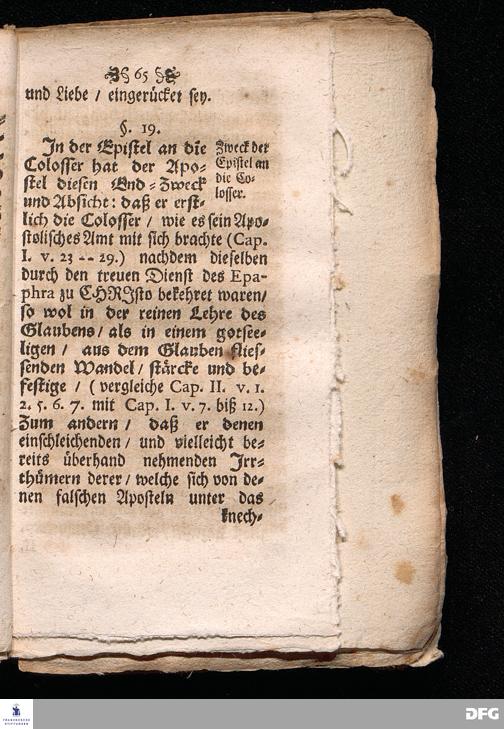 65
und Liebe / eingerücket sey.
§. 19.
In der Epistel an die
Colosser hat der Apo-
stel diesen End-Zweck
und Absicht: daß er erst-
lich die Colosser / wie es sein Apo-
stolisches Amt mit sich brachte (Cap.
I. v. 23 -- 29.) nachdem dieselben
durch den treuen Dienst des Epa-
phra zu CHRJsto bekehret waren/
so wol in der reinen Lehre des
Glaubens / als in einem gotsee-
ligen / aus dem Glauben flies-
senden Wandel / stärcke und be-
festige / ( vergleiche Cap. II. v. 1.
2. 5. 6. 7. mit Cap. I. v. 7. biß 12.)
Zum andern / daß er denen
einschleichenden / und vielleicht be-
reits überhand nehmenden Irr-
thümern derer / welche sich von de-
nen falschen Aposteln unter das
knech-
Zweck der
Epistel an
die Co-
losser.
FRANCKESCHE
STIFTUNGEN
DFG